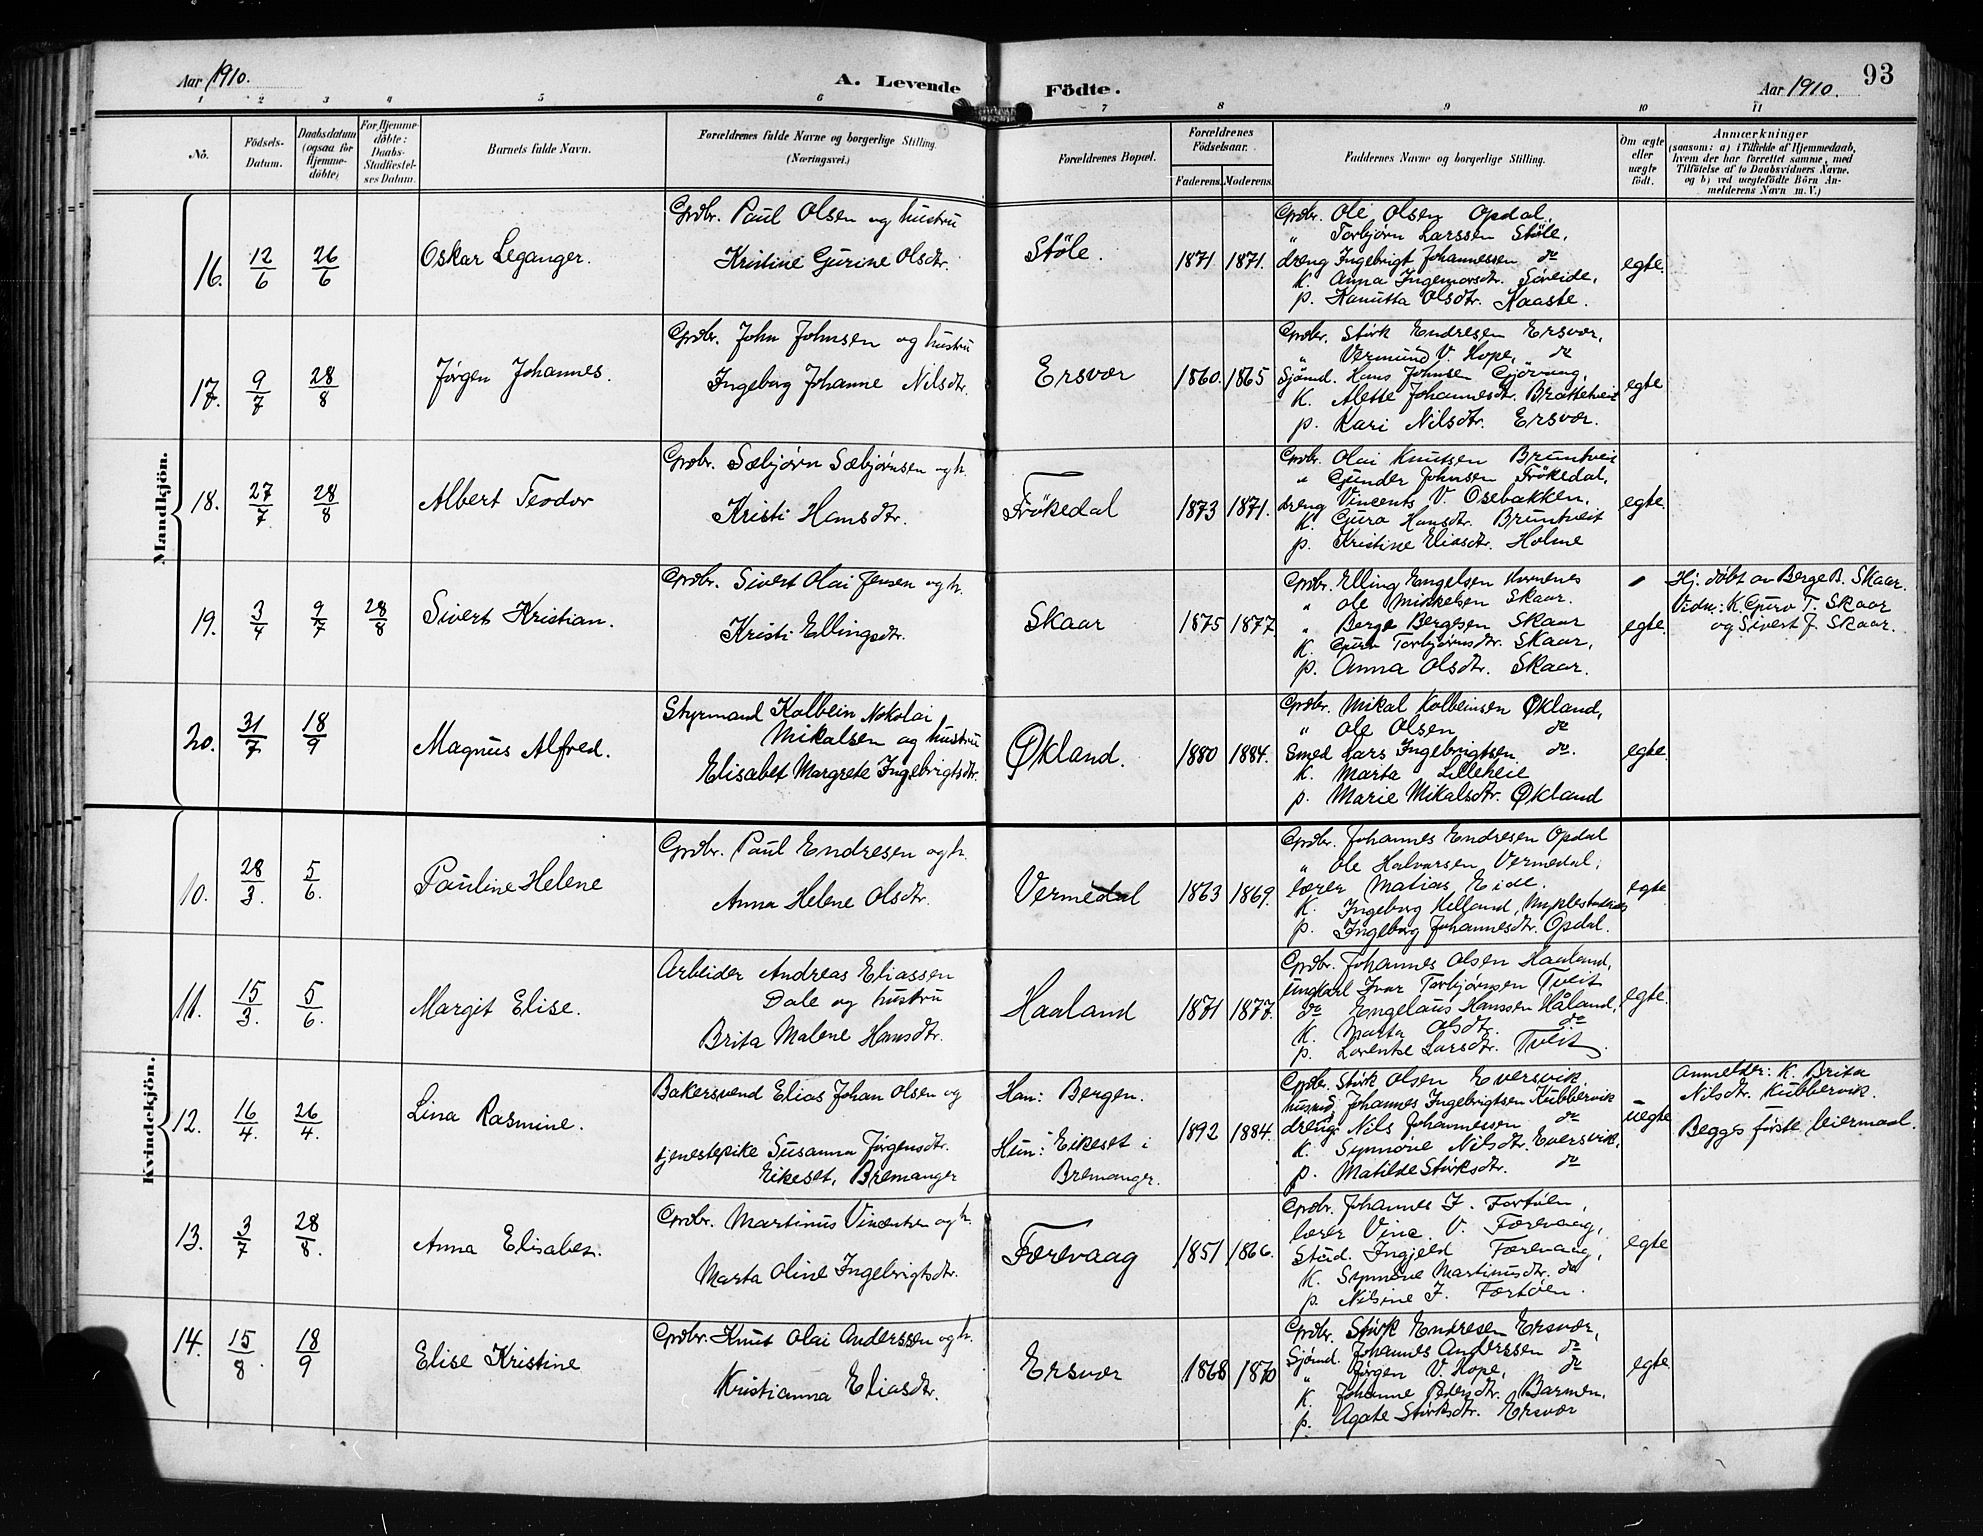 Aar 1910.
A. Levende Födte.
Aar 1910.
93
1 2 3 4 5 6 7 8 9 10 11
No.
Födsels-Datum.
Daabsdatum (ogsaa for Hjemme-döbte)
For Hjemme-döbte: Daabs-Stadfæstel-ses Datum.
Barnets fulde Navn.
Forældrenes fulde Navne og borgerlige Stilling. (Næringsvei.)
Forældrenes Bopæl.
Forældrenes Födselsaar.
Faderens. Moderens.
Faddernes Navne og borgerlige Stilling.
Om ægte eller uægte födt.
Anmærkninger
(saasom: a) i Tilfælde af Hjemmedaab,
hvem der har forrettet samme, med
Tilföielse af to Daabsvidners Navne,
og b) ved uægtefödte Börn An-
melderens Navn m. V.)
Mandkjön.
16. 12/6 26/6 Oskar Leganger.
Grdbr. Paul Olsen og hustru
Kristine Gurine Olsdtr.
Støle. 1871 1871.
Grdbr. Ole Olsen Opdal,
" Torbjørn Larssen Støle,
dreng Ingebrigt Johannessen do
K. Anna Ingemorsdtr. Søreide,
p. Hanutta Olsdtr. Kaaste.
egte.
17. 9/7 28/8 Jørgen Johannes.
Grdbr. John Johnsen og hustru
Ingeborg Johanne Nilsdtr.
Ersvær 1860. 1865
Grdbr. Størk Endresen Ersvær,
" Vermund V. Hope, do
Sjømd. Hans Johnsen Gjørvaag,
K. Alette Johannesdtr. Brakktveit
p. Kari Nilsdtr. Ersvær.
egte
18. 27/7 28/8 Albert Teodor
Grdbr. Sæbjørn Sæbjørnsen og h.
Kristi Hansdtr.
Frökedal 1873 1871.
Grdbr. Olai Knutsen Bruntveit
" Gunder Johnsen Frökedal,
dreng Vincents V. Osebakken,
K. Guro Hansdtr. Bruntveit
p. Kristine Eliasdtr. Holme
egte.
19. 3/4 9/7 28/8 Sivert Kristian.
Grdbr. Sivert Olai Jensen og h.
Kristi Ellingsdtr.
Skaar 1875 1877.
Grdbr. Elling Engelsen Hornenes
" Ole Mikkelsen Skaar.
" Berge Bergesen Skaar
K. Guro Torbjørnsdtr. Skaar,
p. Anna Olsdtr. Skaar.
egte.
Hj. døbt av Berge B. Skaar.
Vidn: K. Guro T. Skaar
og Sivert J. Skaar.
20. 31/7 18/9 Magnus Alfred.
Styrmand Kolbein Nokolai
Mikalsen og hustru
Elisabet Margrete Ingebrigtsdtr.
Økland. 1880 1884.
Grdbr. Mikal Kolbeinsen Økland,
" Ole Olsen do
Smed Lars Ingebrigtsen do.
K. Marta Lilleheie
p. Marie Mikalsdtr. Økland
egte.
Kvindekjön.
10. 28/3. 5/6. Pauline Helene
Grdbr. Paul Endresen og h.
Anna Helene Olsdtr.
Vermedal 1863 1869.
Grdbr. Johannes Endresen Opdal
" Ole Halvarsen Vermedal,
lærer Matias Eide.
K. Ingeborg Helland,
p. Ingeborg Johannesdtr. Opdal.
egte
11. 15/3. 5/6. Margit Elise.
Arbeider Andreas Eliassen
Dale og hustru
Brita Malene Hansdtr.
Haaland 1871 1877.
Grdbr. Johannes Olsen Haaland,
Ungkarl Ivar Torbjørnsen Tveit
do Engelaus Hanssen Håland,
K. Marta Olsdtr. do
p. Lorentse Larsdtr. Tveit.
egte.
12. 16/4. 26/4. Lina Rasmine.
Bakersvend Elias Johan Olsen og
tjenestepike Susanna Jørgensdtr.
Eikeset, Bremanger
Han: Bergen.
Hun: Eikeset i
Bremanger.
1892 1884.
Grdbr. Størk Olsen Eversvik
husmd. Johannes Ingebrigtsen Kubbervik
dreng Nils Johannessen do
K. Synnøve Nilsdtr. Eversvik,
p. Matilde Størksdtr. do
uegte
Anmelder: K. Brita
Nilsdtr. Kubbervik.
Begges første leiermaal.
13. 3/7 28/8. Anna Elisabet.
Grdbr. Martinus Vincentsen og h.
Marta Oline Ingebrigtsdtr.
Færevaag 1851 1866.
Grdbr. Johannes I. Fortøen,
lærer Vinc. V. Færevaag,
Stud. Ingjeld Færevaag,
K. Synnøve Martinusdtr. do
p. Nilsine I. Færtøen.
egte
14. 15/8. 18/9 Elise Kristine
Grdbr. Knut Olai Anderssen og h.
Kristianna Eliasdtr.
Ersvær 1868 1870
Grdbr. Størk Endresen Ersvær,
Sjømd. Johannes Anderssen do
" Jørgen V. Hope, do
K. Johanne Pedersdtr. Barmen,
p. Agate Størksdtr. Ersvær
egte